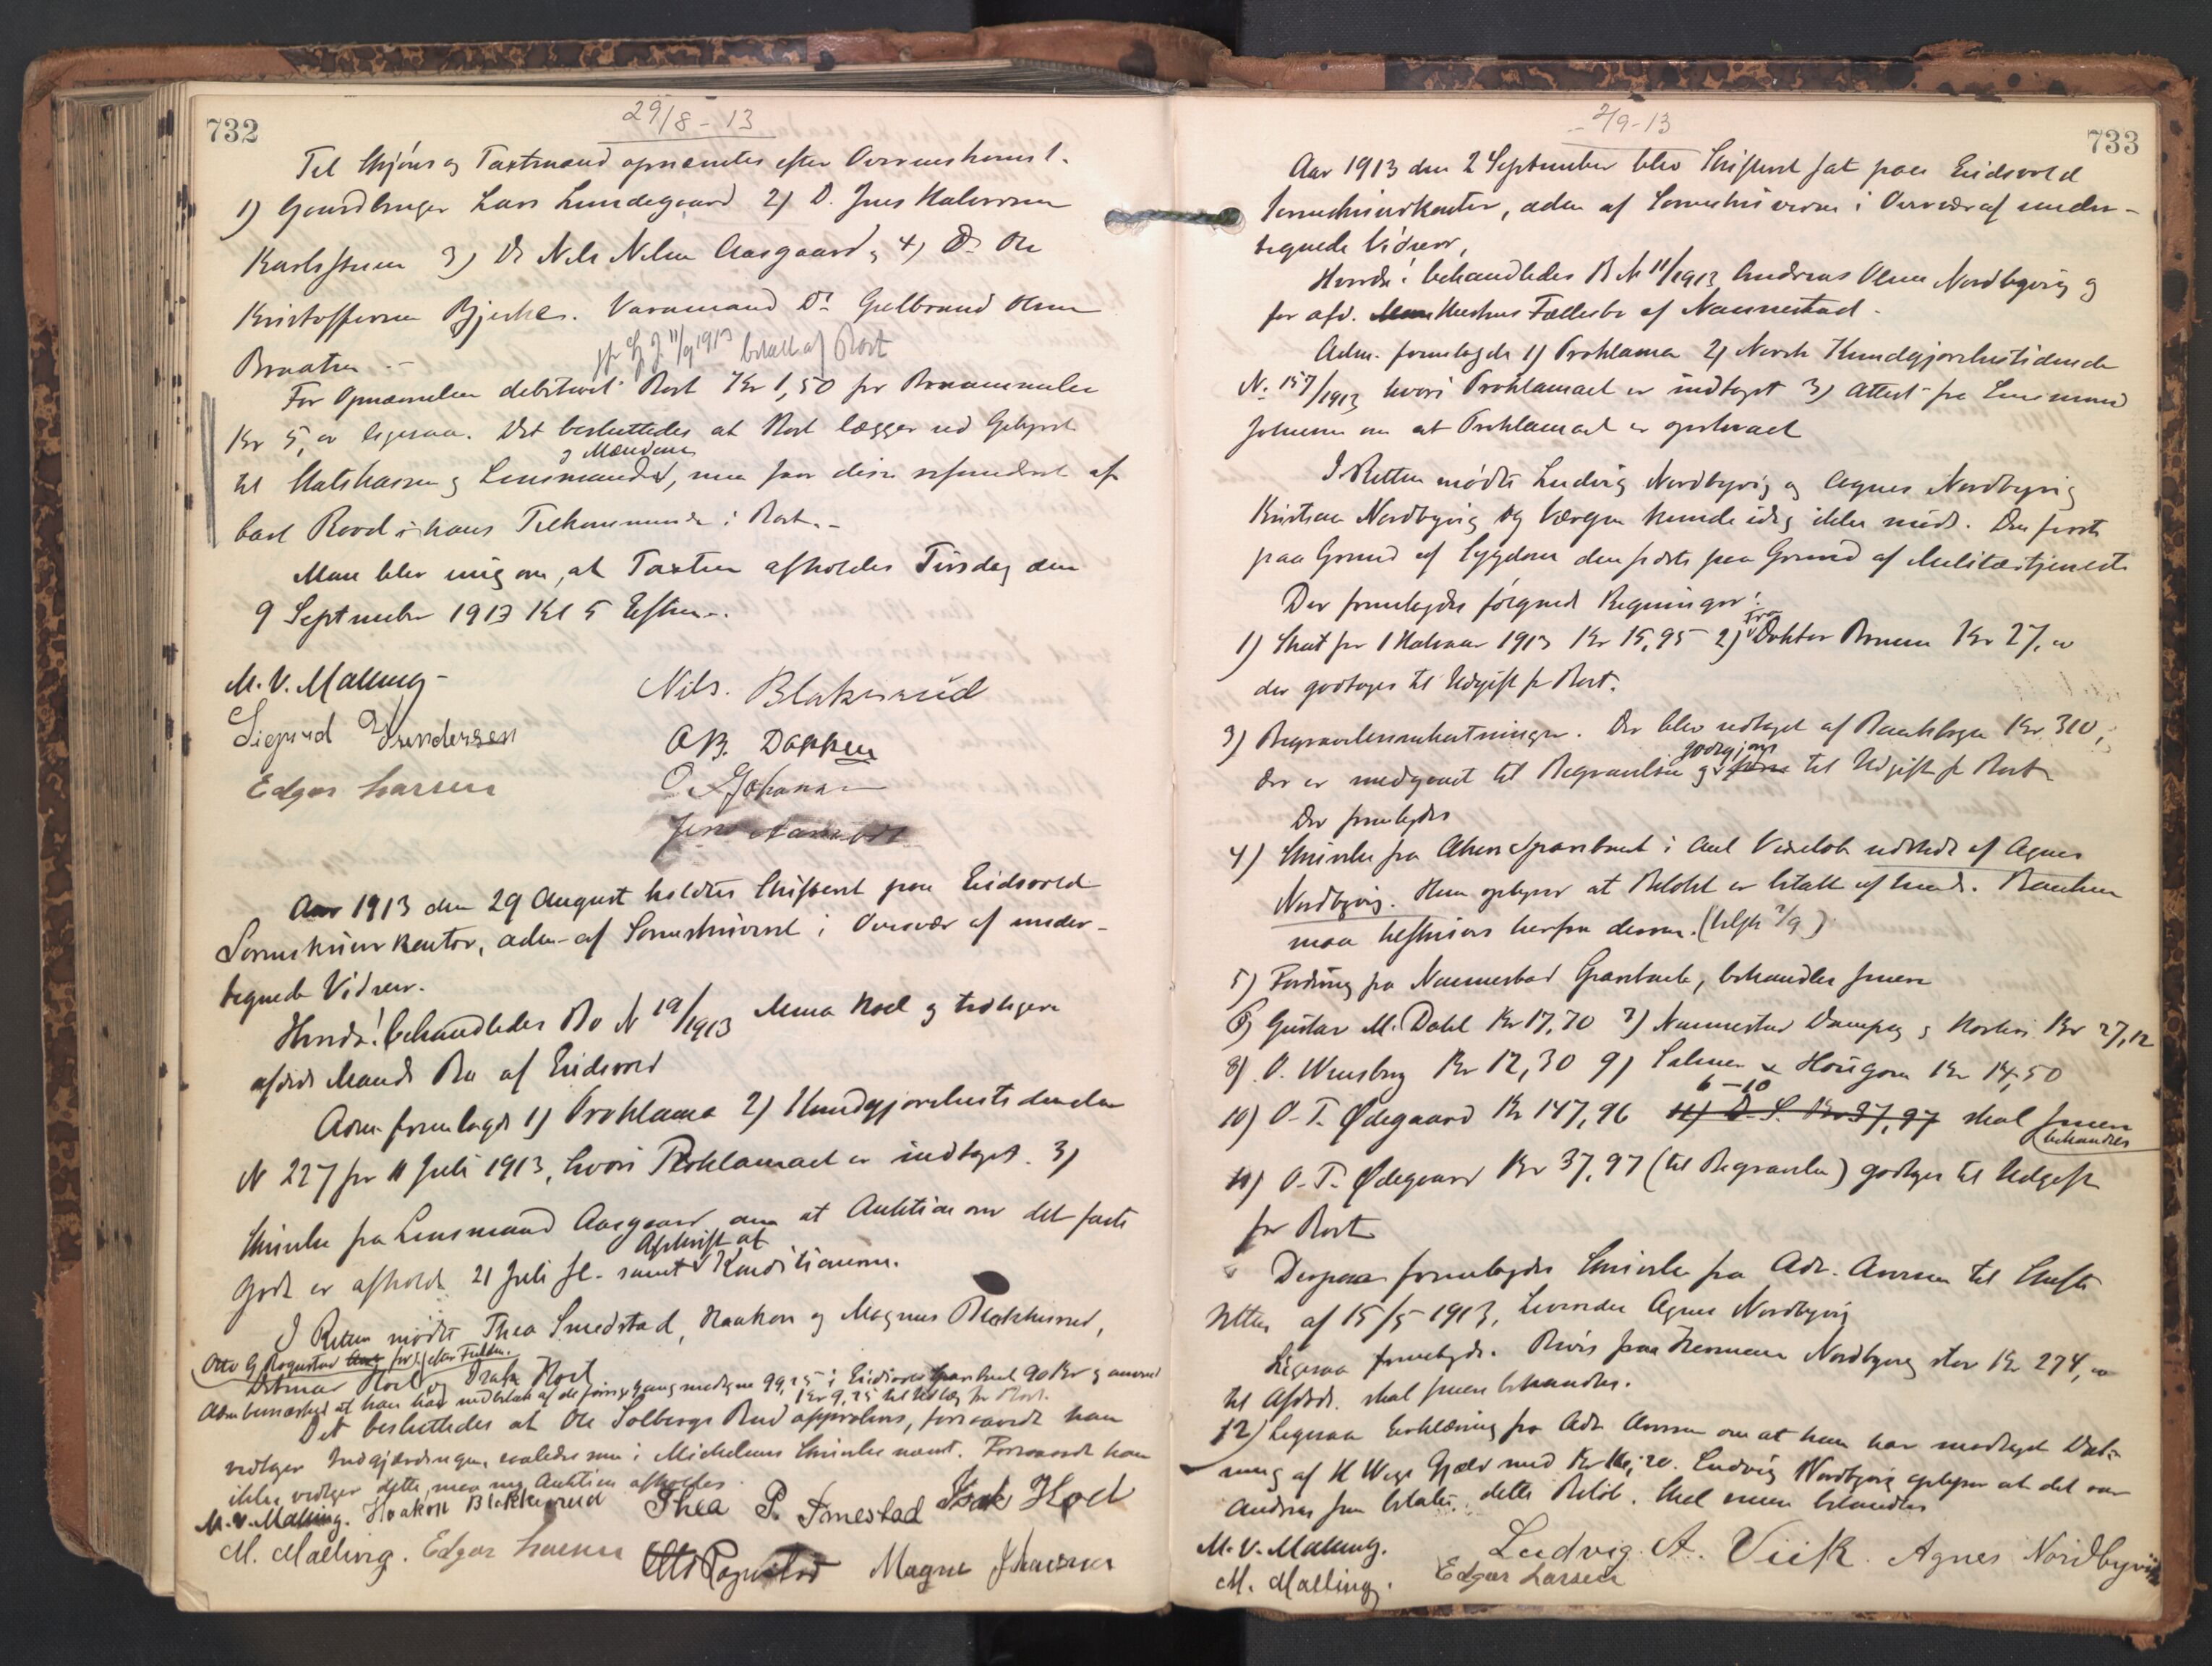 732
29/8 - 13
Til Skjøns og Taxtmænd opnævntes efter Overenskomst.
1) Gaardbruger Lars Lundegaard 2) D. Jens Halvorsen
Karlsstuen 3) Do Nils Nilsen Aasgaard, 4) Do Ole
Kristoffersen Bjerke. Varamand Do Gulbrand Olsen
Braaten.-
11/9 1913 betalt af Bort
For Opnævnelsen debiteret Bort Kr 1,50 for
Kr 5, ligesaa. Det besluttedes at Bort lægger ud Gebyret
og Mændene
til Statskassen og Lensmanden, men faar disse refunderet af
Carl Rood i hans Tilkommende i Bort.-
Man blev enig om, at Taxten afholdes Tirsdag den
9 September 1913 Kl 5 Efterm.
M. V. Malling
Nils. Blakerud
Sigurd Gundersen
O. B. Dokken
Edgar Larsen
O. Johansen
Aar 1913 den 29 August holdtes Skifteret paa Eidsvold
Sorenskriverkontor, adm. af Sorenskriveren i Overvær af under-
tegnede Vidner.
Hvorda! behandledes Bo N 19/1913 Anna Hoel og tidligere
afdøde Mands Bo af Eidsvold
Adm. fremlagde 1) Proklama 2) Kundgjørelsestidende
N 227 for 11 Juli 1913, hvori Proklamaet er indtaget. 3)
Skrivelse fra Lensmand Aasgaard om at Auktion over det faste
Afskrift af
Gods er afholdt 21 Juli ds. samt Konditionerne.
I Retten mødte Thea Smedstad, Haakon og Magnus Blekkerud,
Otto G Rognstad for efter Fuldm.
Ditmar Hoel og Isak Hoel
Adm bemærked at han har modtaget 99,25 i Eidsvold Sparebank 90 Kr og anvendt
Kr 9,25 til Udlæg for Bort.
Det besluttedes at Ole Solbergs Bud approberes, forsaavidt han
vedtager Indgjærdingen, saaledes som i Michelsens Skrivelse nævnt. Forsaavidt han
ikke vedtager dette, maa ny Auktion afholdes.
M. V. Malling. Haakon Blekkerud Thea P. Smestad Isak Hoel
M. Malling. Edgar Larsen Otto Rognstad Magne Johansen
733
2/9-13
Aar 1913 den 2 September blev Skifteret sat paa Eidsvold
Sorenskriverkontor, adm. af Sorenskriveren i Overvær af under-
tegnede Vidner,
Hvorda! behandledes B N 11/1913 Andreas Olsen Nordbyvig og
før afd. Hustrus Fællesbo af Nannestad.
Adm. fremlagde 1) Proklama 2) Norsk Kundgjørelsestidende
No. 157/1913 hvori Proklamaet er indtaget 3) Attest fra Lensmand
Johnsen om at Proklamaet er opslaaet
I Retten mødte Ludvig Nordbyvig og Agnes Nordbyvig
Kristian Nordbyvig og Værgen kunde idag ikke møde. Den første
paa Grund af Sygdom den sidste paa Grund af Militærtjeneste
Der fremlagdes følgende Regninger:
1) Skat for 1 Halvaar 1913 Kr 15,95 2) Fra Doktor Kr 27,
der godtages til Udgift for Bort.
3) Begravelsesomkostninger. Der blev udtaget af Bankbogen Kr. 310,
godtgjøres
der er medgaaet til Begravelsen og til Udgift for Bort
Der fremlagdes
4) Skrivelse fra Akers Sparebank i Anl Vexelob udstedt af Agnes
Nordbyvig. Hun oplyser at Beløbet er betalt af hende. Banken
maa tilskrives herfra derom. (tilsk 2/9)
5) Fordring fra Nannestad Sparebank, behandles senere
6) Gustav M. Dahl Kr 17,70 7) Nannestad Dampsag og Høvleri Kr 27,12
8) O. Wensberg Kr 12,30 9) Salmer x Hougom Kr 14,50
6-10
10) O. T. Ødegaard Kr 147,96 11) D. S. Kr 37,97 skal senere
behandles
11) O. T. Ødegaard Kr 37,97 (til Begravelse) godtges til Udgift
for Bort
Derpaa fremlagdes Skrivelse fra Adv. Aarsen til Skifte
retten af 15/5 1913, hvorunder Agnes Nordbyvig
Ligesaa fremlagdes. Bevis fra Hermann Nordbyvig stor Kr 274,
til Afdøde. skal senere behandles.
12) Ligesaa Erklæring fra Adv Aarsen om at han har modtaget Dæk-
ning af H Gjæld med Kr Ludvig Nordbyvig oplyser at det var
Andreas som betalte dette Beløb. Skal senere behandles
M. V. Malling. Ludvig. A. Viik. Agnes Nordbyvik
M. Malling. Edgar Larsen